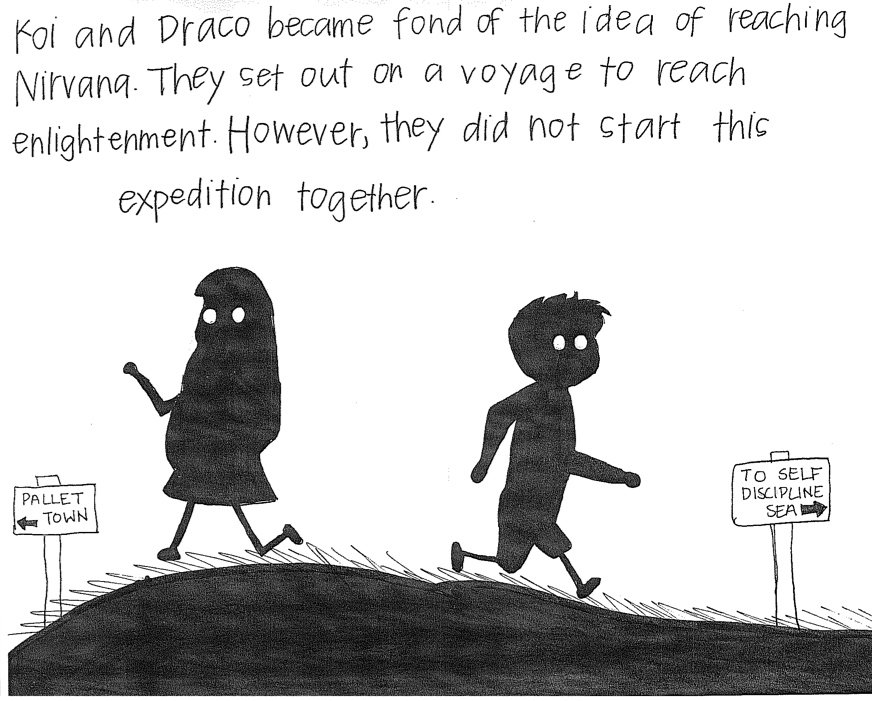 Koi and Draco became fond of the idea of reaching
Nirvana. They set out on a voyage to reach
enlightenment. However, they did not start this
expedition together.
PALLET
TOWN
TO SELF
DISCIPLINE
SEA